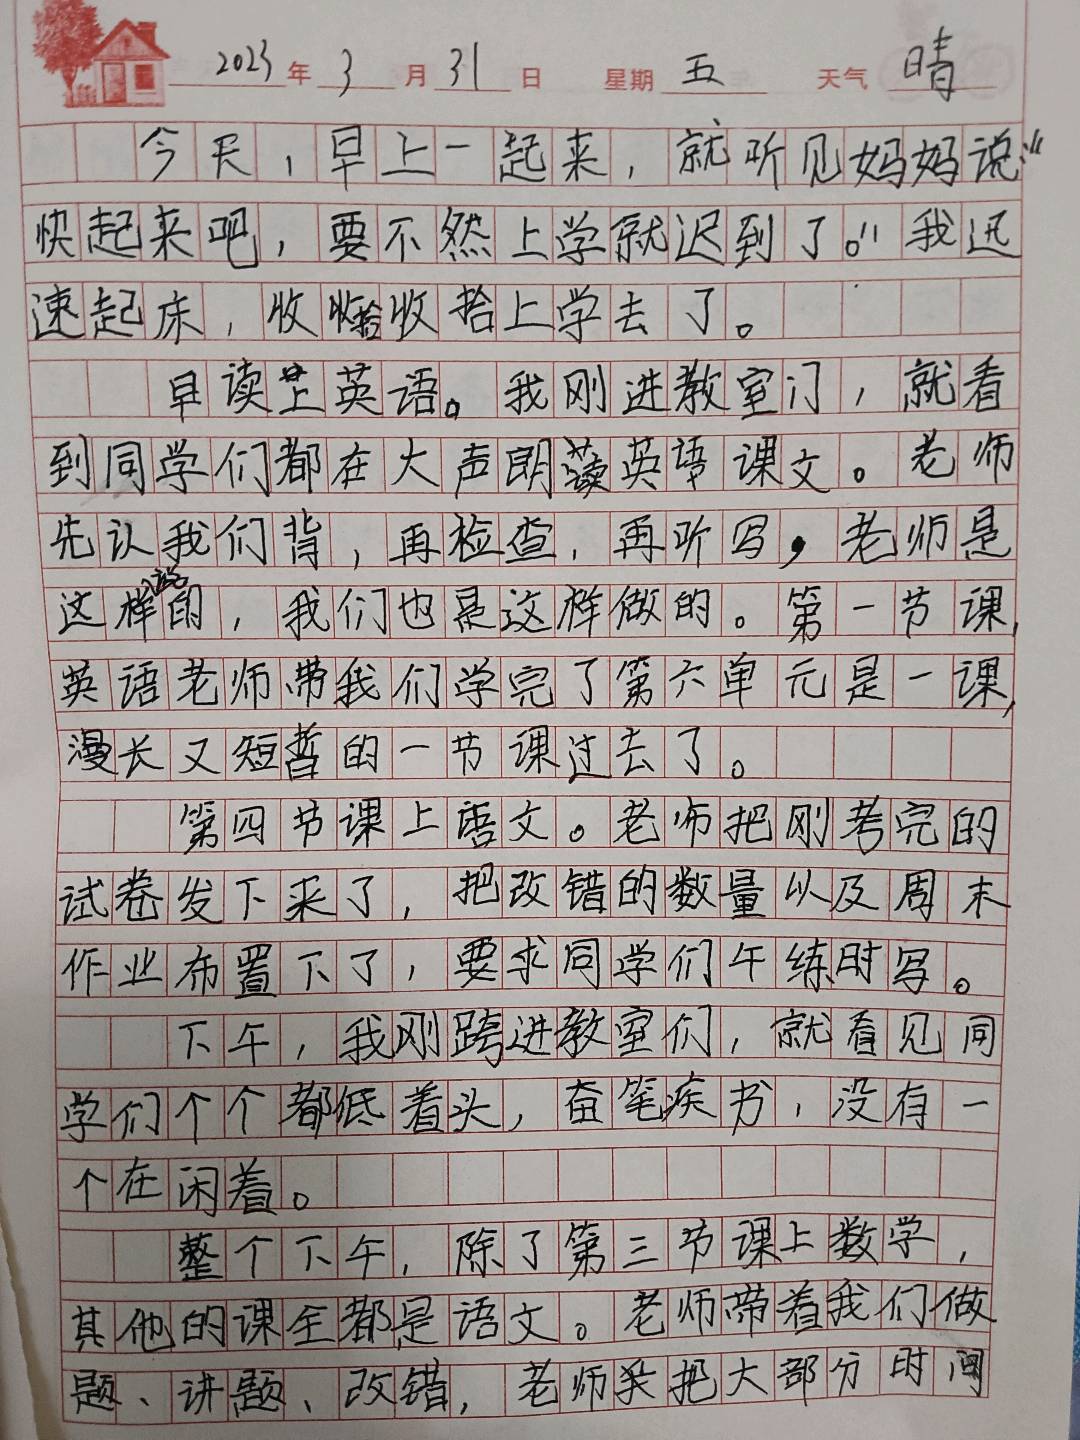 2023年3月31日 星期五 天气晴
今天，早上一起来，就听见妈妈说："
快起来吧，要不然上学就迟到了。"我迅
速起床，收收拾收拾上学去了。
早读上英语。我刚进教室门，就看
到同学们都在大声朗读英语课文。老师
先认我们背，再检查，再听写，老师是
这样说的，我们也是这样做的。第一节课，
英语老师带我们学完了第六单元是一课，
漫长又短暂的一节课过去了。
第四节课上语文。老师把刚考完的
试卷发下来了，把改错的数量以及周末
作业布置下了，要求同学们午练时写。
下午，我刚跨进教室们，就看见同
学们个个都低着头，奋笔疾书，没有一
个在闲着。
整个下午，除了第三节课上数学，
其他的课全都是语文。老师带着我们做
题、讲题、改错，老师把大部分时间